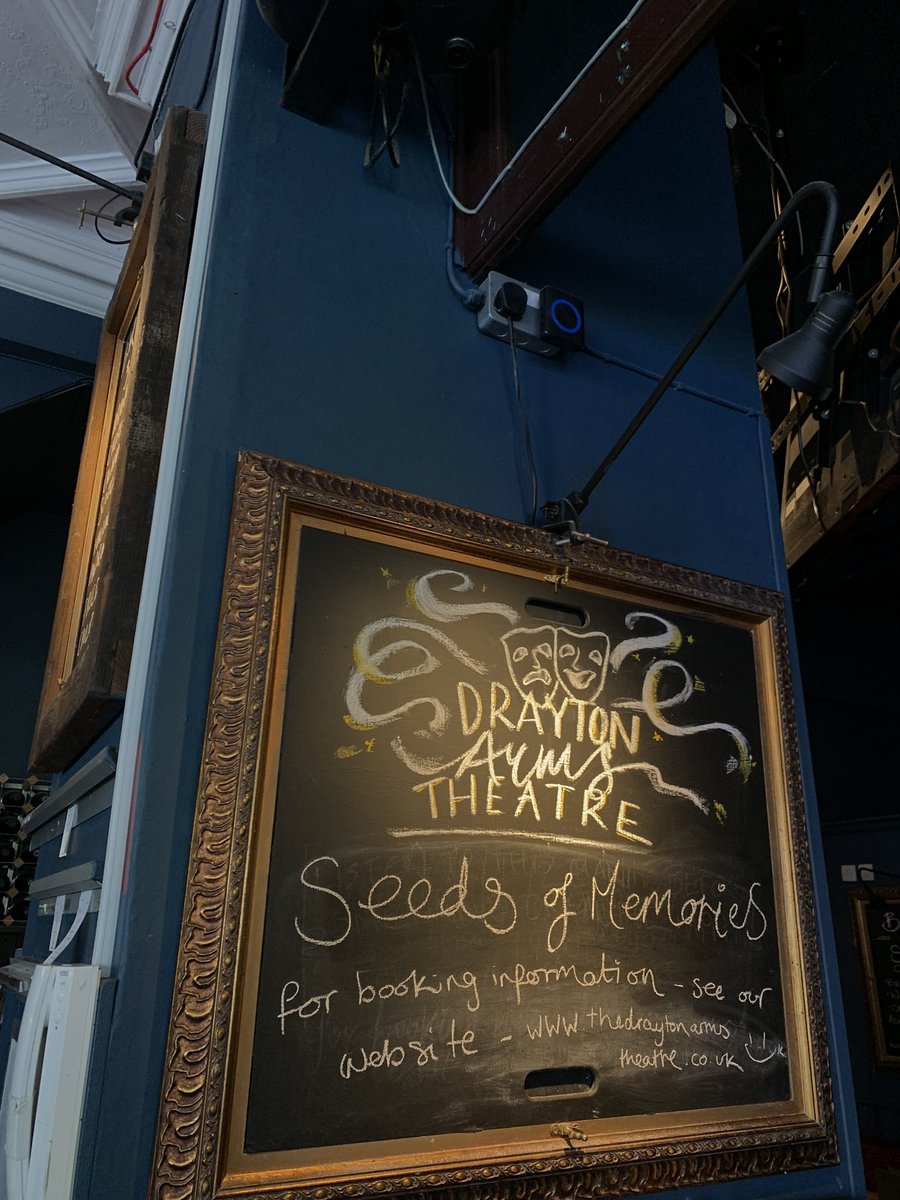 DRAYTON
Arms
THEATRE
Seeds of Memories
for booking information - see our
website - www thedraytonarms
theatre.co.uk